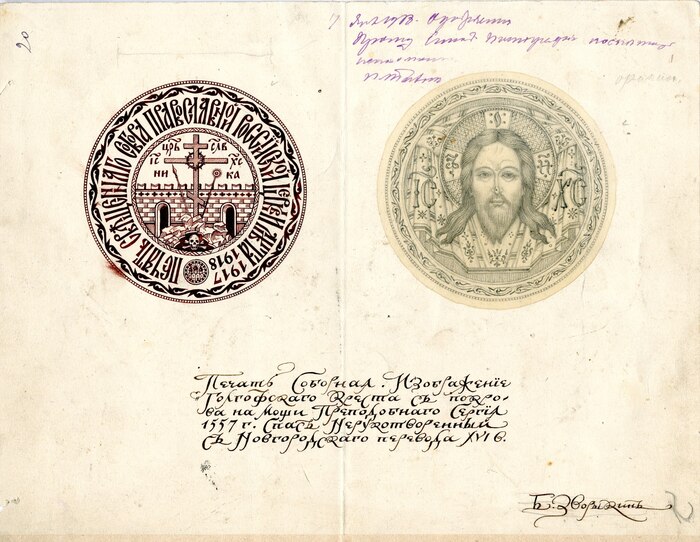 20
Прошу Синод.
ПЕЧАТЬ СВЯЩЕННАГѠ СОБОРА ПРАВОСЛАВНОЙ РОССІЙСКОЙ ЦЕРКВИ ЛѢТА 1917
1918
ЦРЬ СЛВ
ІС ХС
НИ КА
ІС ХС
Печать Соборная. Изображеніе
Голгофскаго Креста съ покро-
ва на мощи Преподобнаго Сергія
1557 г. Спасъ Нерукотворенный
съ Новгородскаго перевода XVI в.
Б. Зворыкинъ